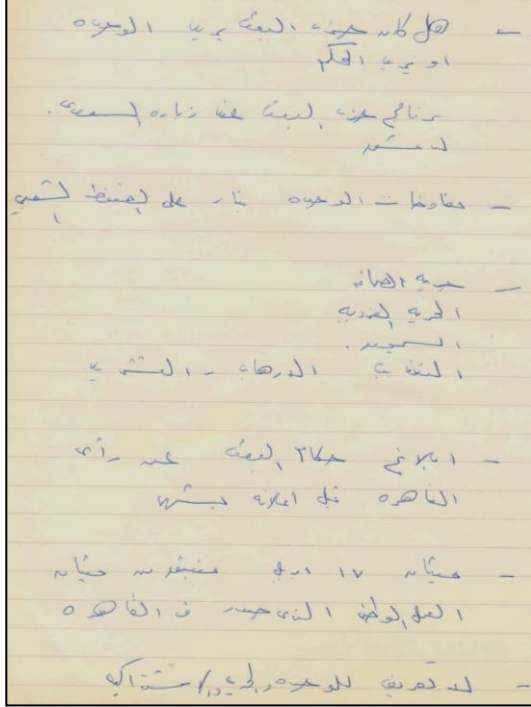 - هل كان حزب البعث يريد الوحده
او يريد الحكم
برنامج حزب البعث عند زياره السعدى.
- مفاوضات الوحده بناء على الضغط الشعبى
- حريه الصحافه
الحريه الفرديه
التعذيب الارهاب -
- ابلاغ حكام البعث عن رأى
القاهره قبل اعلانه بشهر
- ميثاق ١٧ ابريل ميثاق
العمل الوطنى الذى صدر فى القاهره
- لا تعريف للوحده والحريه والاشتراكيه